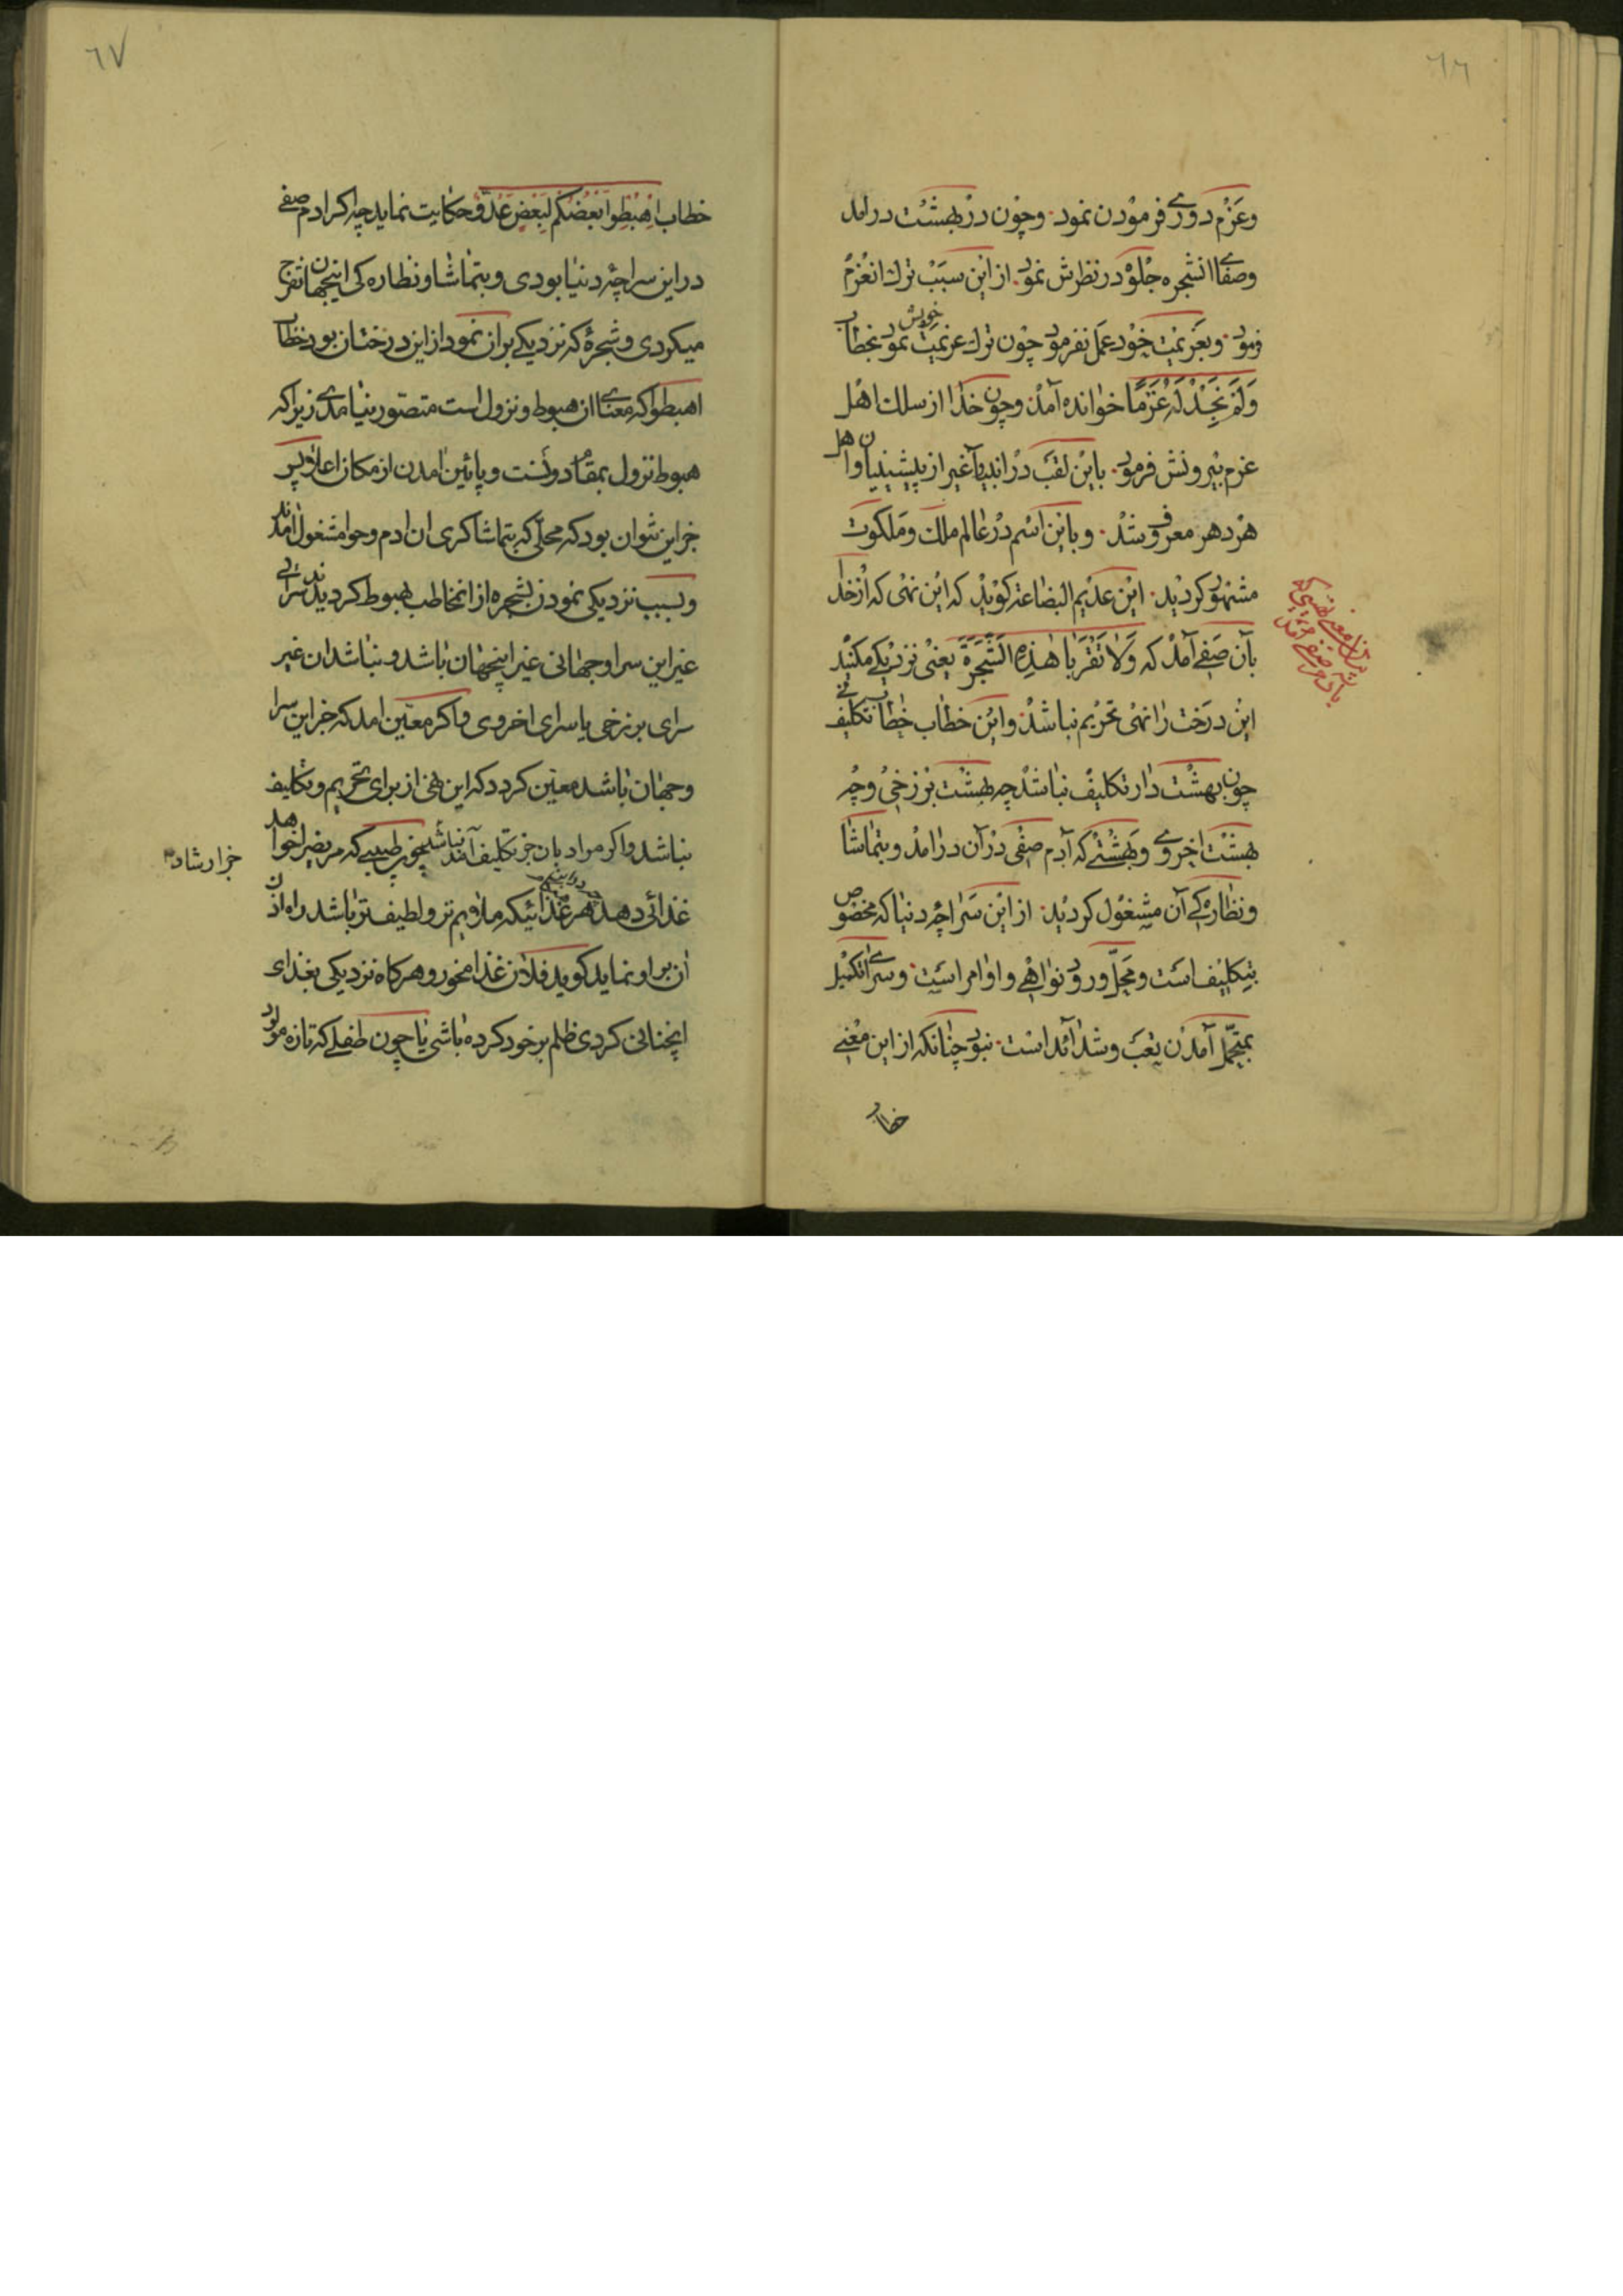 ٦٦
وعزم دوری فرمودن نمود وچون در بهشت درامد
وصفای انشجره جلوه در نظرش نمود از این سبب ترك انعزم
فرمود وبعزیمت خود عمل نفرمود چون ترك عزیمت خویش نمود بخطاب
وَلَمْ نَجِدْ لَهُ عَزْمًا خوانده آمد وچون خدا از سلك اهل
عزم بیرونش فرمود باین لقب در انبیا غیر از پیشینیان واهل
هر دهر معروف شد وباین اسم در عالم ملك وملكوت
مشهور كردید این عدیم البضاعة كوید كه این نهی كه از خدا
بآن صفی آمد كه وَلَا تَقْرَبَا هٰذِهِ الشَّجَرَةَ یعنی نزدیكی مكنید
این درخت را نهی تحریم نباشد واین خطاب خطاب تكلیف نی
چون بهشت دار تكلیف نباشد چه بهشت برزخی وچه
بهشت اخروی وبهشتی كه آدم صفی در آن درامد وبتماشا
ونظاره كی آن مشغول كردید از این سراچه دنیا كه مخصوص
بتكلیف است ومحل ورود نواهی واوامر است وسرای تكمیل
بمتحمل آمدن تعب وشدائد است نبود چنانكه از این معنی
خطاب
٦٧
خطاب اهْبِطُوا بَعْضُكُمْ لِبَعْضٍ عَدُوٌّ حكایت نماید چه اكر ادم صفی
در این سراچه دنیا بودی وبتماشا ونظاره كی اینجهان تفرج
میكردی وشجرهٔ كه نزدیكی بران نمود از این درختان بود خطاب
اهبطوا كه معنای ان هبوط ونزول است متصور نیامدی زیرا كه
هبوط نزول بمقام دونست وپائین امدن از مكان اعلا وپس
جز این نتوان بود كه محلی كه بتماشا كری ان ادم وحوا مشغول امدند
وبسبب نزدیكی نمودن بشجره از انمخاطب هبوط كردیدند سرائی
غیر این سرا وجهانی غیر اینجهان باشد ونباشد ان غیر
سرای برزخی یا سرای اخروی واكر معین امد كه جز این سرا
وجهان باشد معین كردد كه این نهی از برای تحریم وتكلیف
نباشد واكر مراد بان جز تكلیف آمد نباشد چون طبیبی كه مریض را خواهد
جز ارشاد
غذائی دهد هر غذائیكه ملایم تر ولطیف تر باشد راه از
ان بر او نماید كوید فلان غذا مخور وهركاه نزدیكی بغذای
اینچنانی كردی ظلم بر خود كرده باشی یا چون طفلی كه تازه مولود